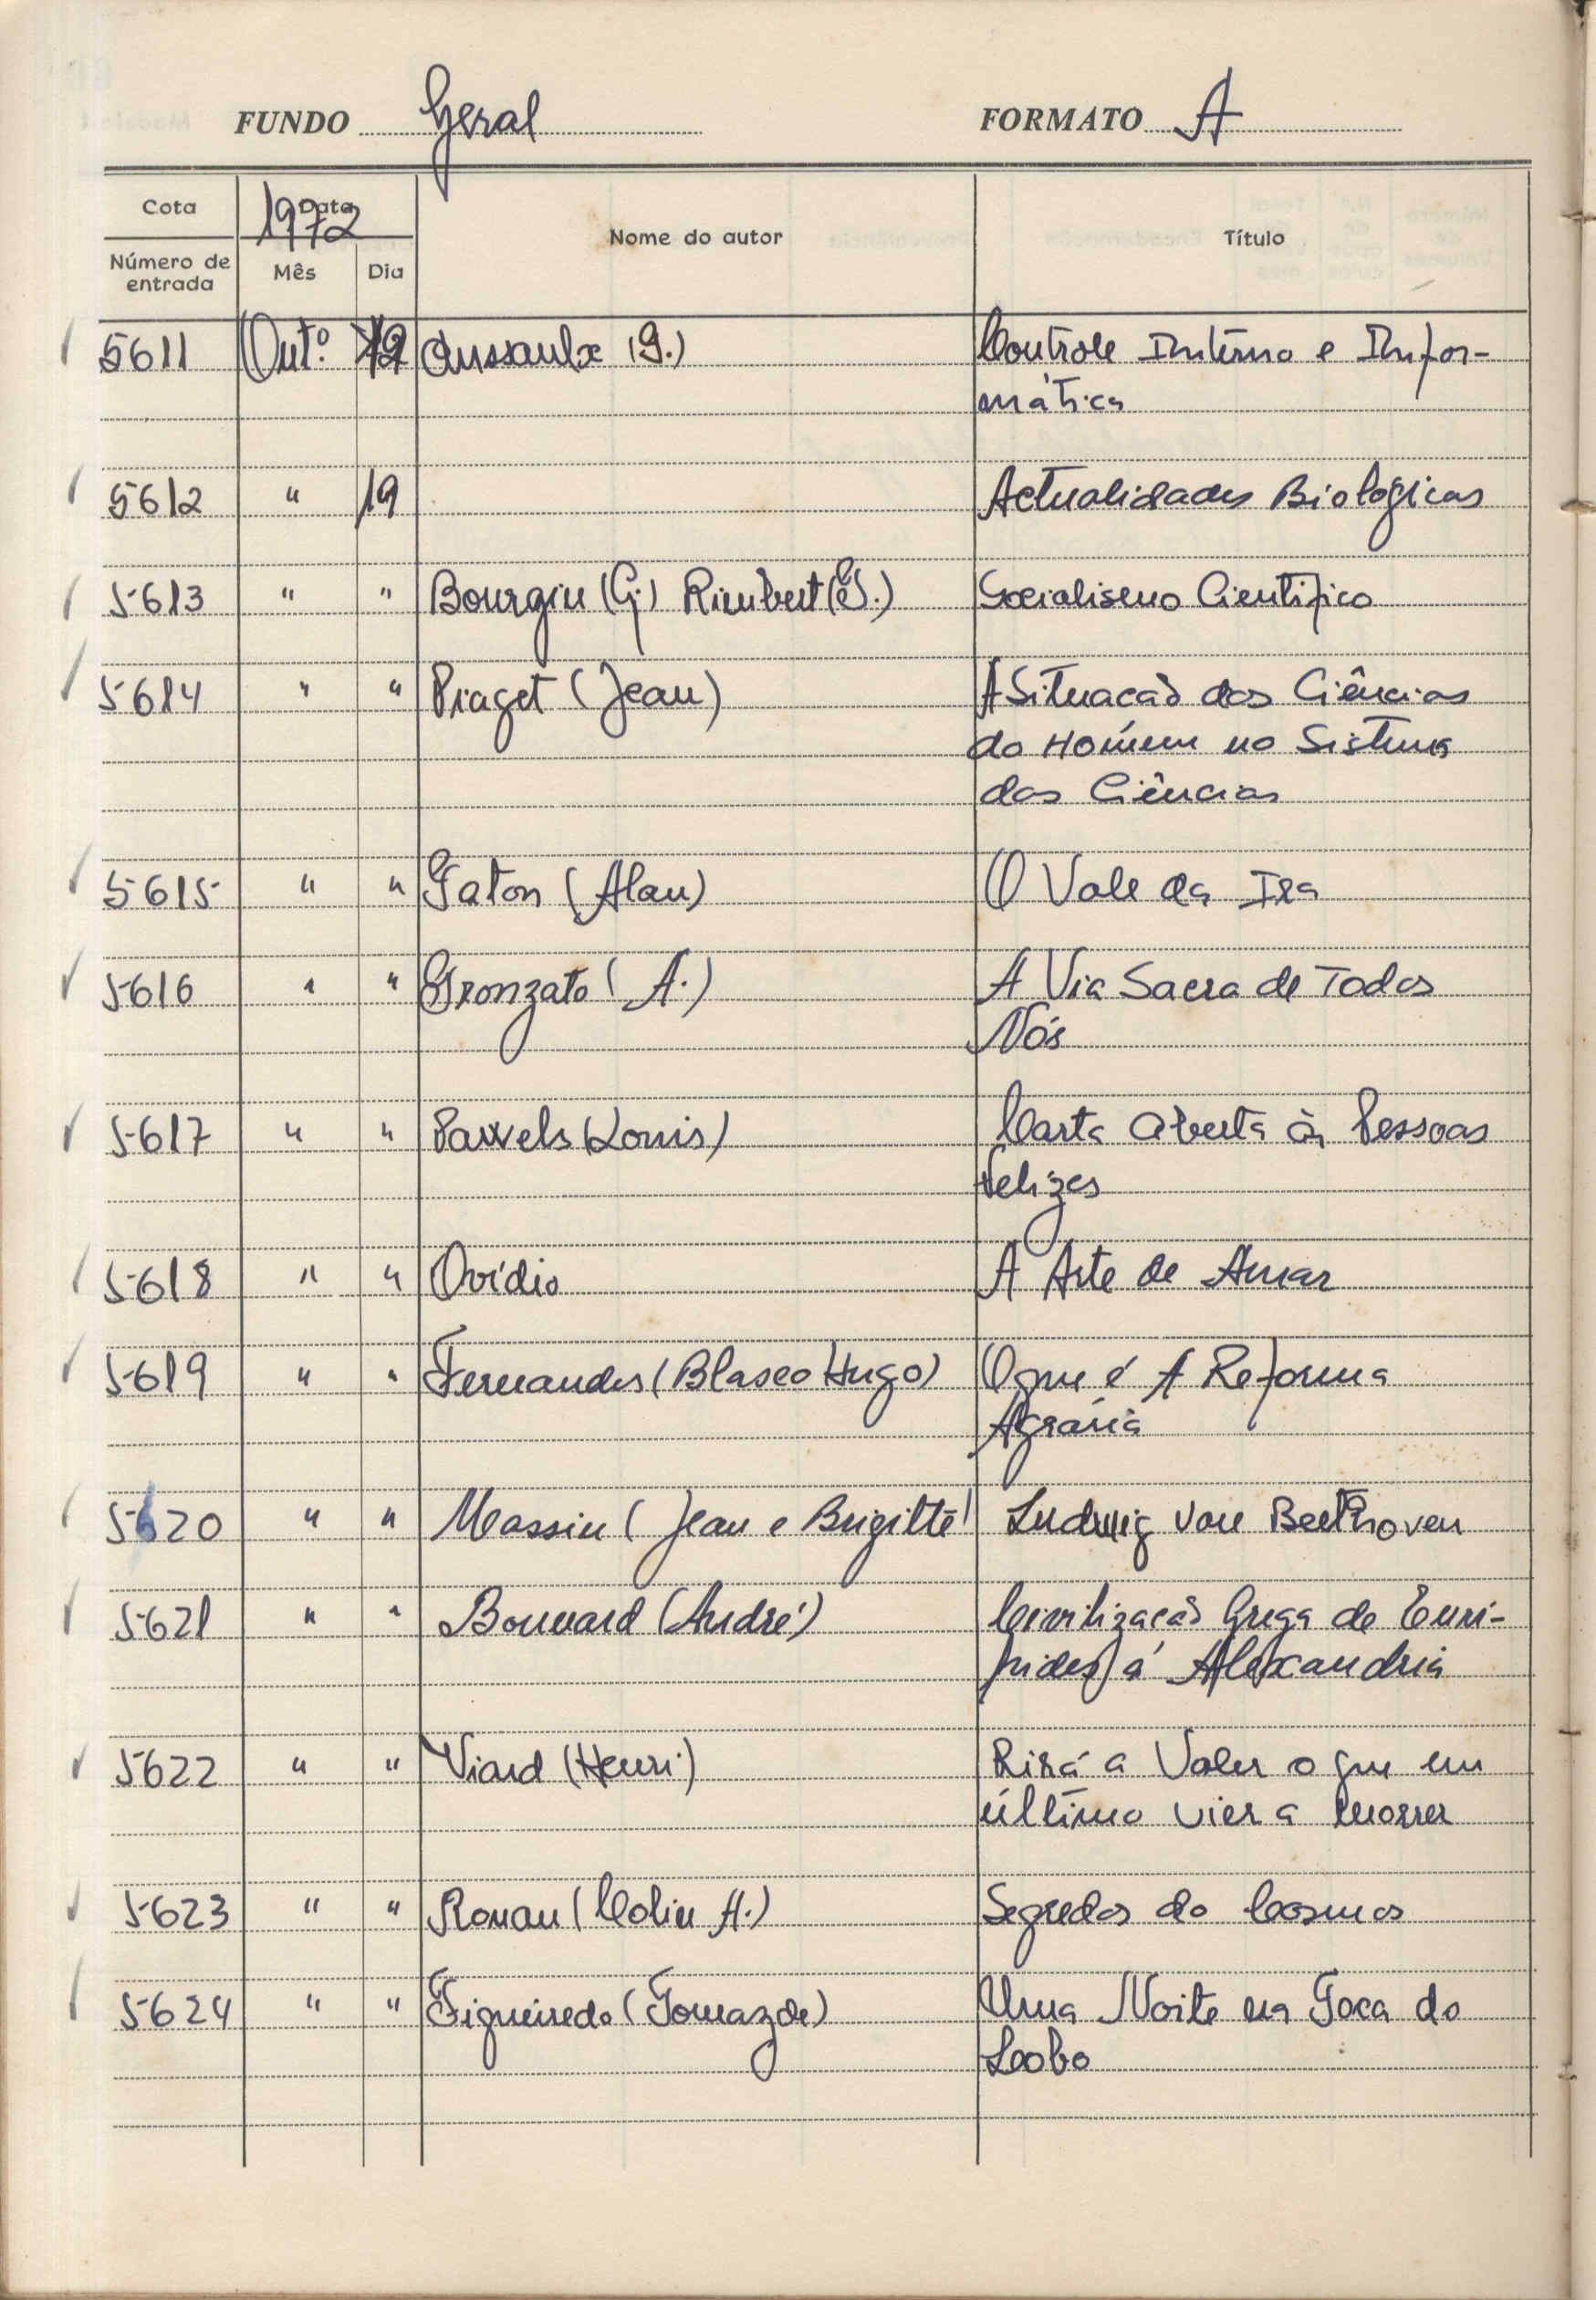 FUNDO Geral FORMATO A
Cota Data 1972 Nome do autor Título
Número de entrada Mês Dia
5611 Outº. 19 Aussaulx (G.) Controle Interno e Infor-
mática
5612 " 19 Actualidades Biológicas
5613 " " Bourgin (G.) Rimbert (P.) Socialismo Cientifico
5614 " " Piaget (Jean) A Situacão das Ciências
do Homem no Sistema
das Ciências
5615 " " Paton (Alan) O Vale da Ira
5616 " " Gronzato (A.) A Via Sacra de Todos
Nós
5617 " " Pawels (Louis) Carta Aberta às Pessoas
Felizes
5618 " " Ovídio A Arte de Amar
5619 " " Fernandes (Blasco Hugo) O que é A Reforma
Agrária
5620 " " Massin (Jean e Brigitte) Ludwig van Beethoven
5621 " " Bonnard (André) Civilizacão Grega de Eurí-
pides á Alexandria
5622 " " Viard (Henri) Rirá a Valer o que em
último vier a morrer
5623 " " Ronan (Colin A.) Segredos do Cosmos
5624 " " Figueiredo (Tomaz de) Uma Noite na Toca do
Lobo